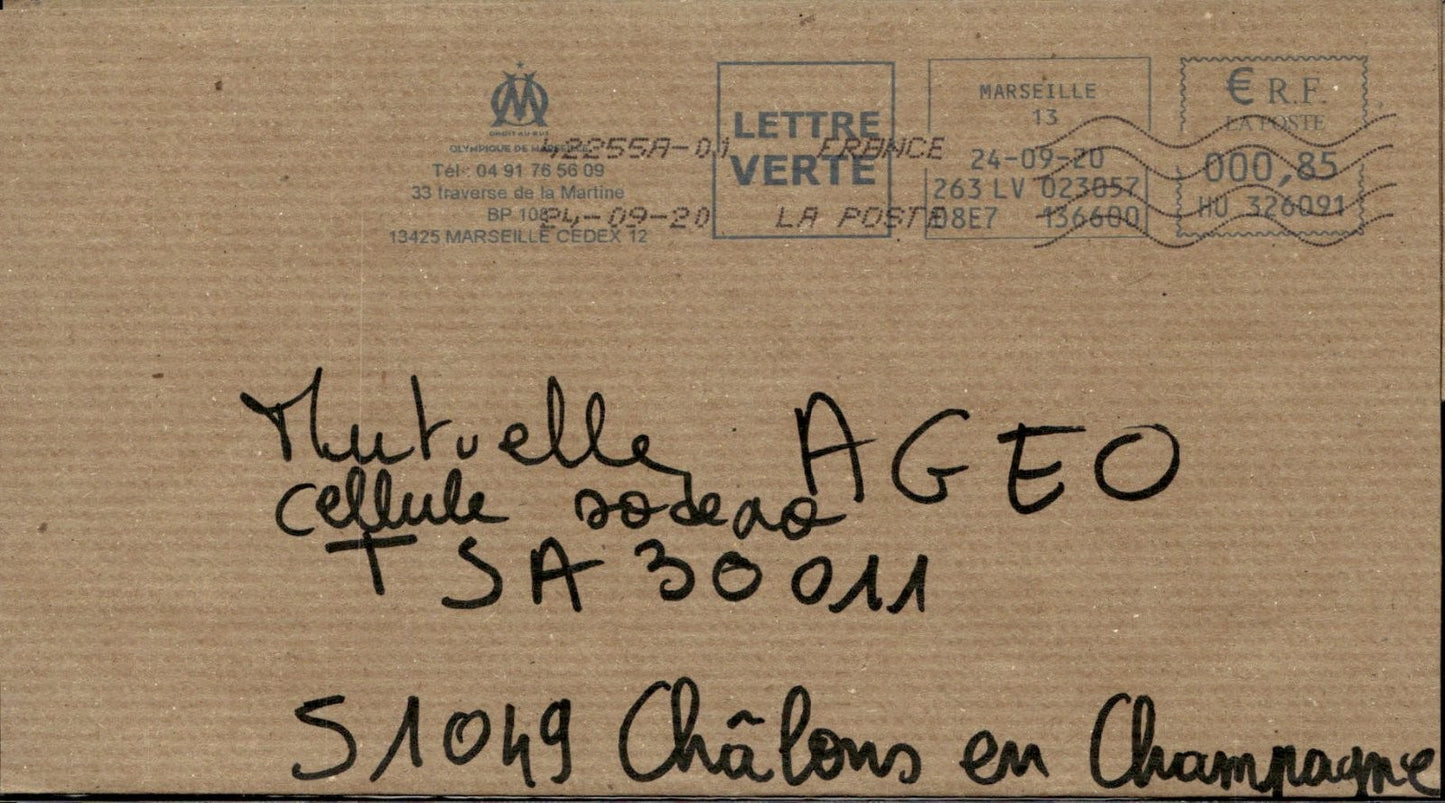 DROIT AU BUT
OLYMPIQUE DE MARSEILLE
Tél : 04 91 76 56 09
33 traverse de la Martine
BP 108
13425 MARSEILLE CEDEX 12
42255A-01 FRANCE
24-09-20 LA POSTE
LETTRE
VERTE
MARSEILLE
13
24-09-20
263 LV 023057
08E7 136600
€ R.F.
LA POSTE
000,85
HU 326091
Mutuelle AGEO
cellule
TSA 30011
51049 Châlons en Champagne